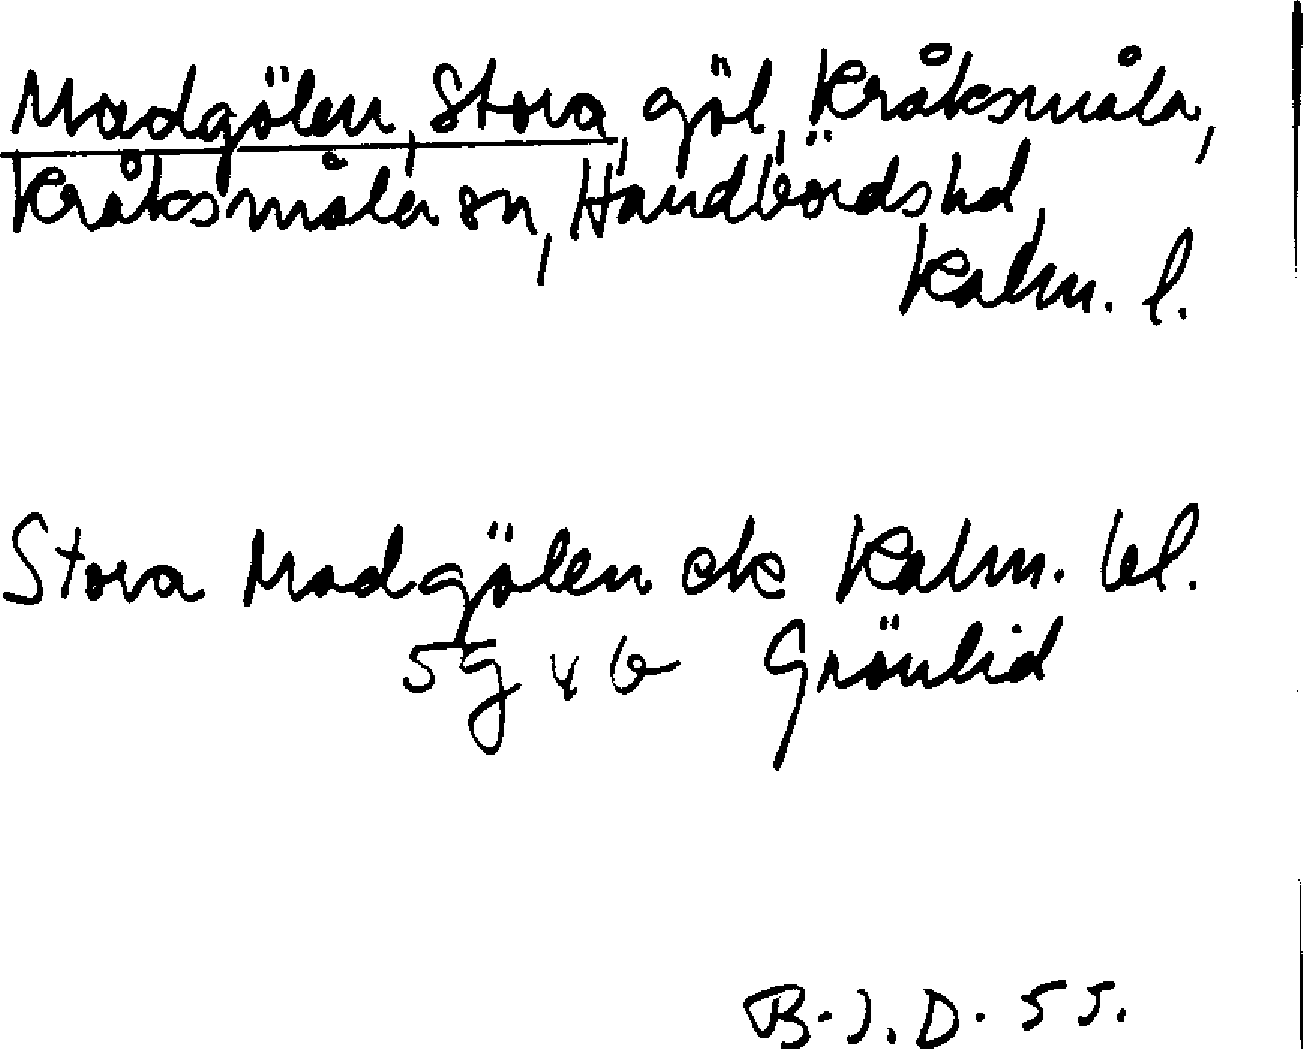 Madgölen, Stora, göl, Kråksmåla,
Kråksmåla sn, Handbörds hd,
Kalm. l.
Stora Madgölen ek Kalm. bl.
5g v b Grönlid
B.J.D. 55.